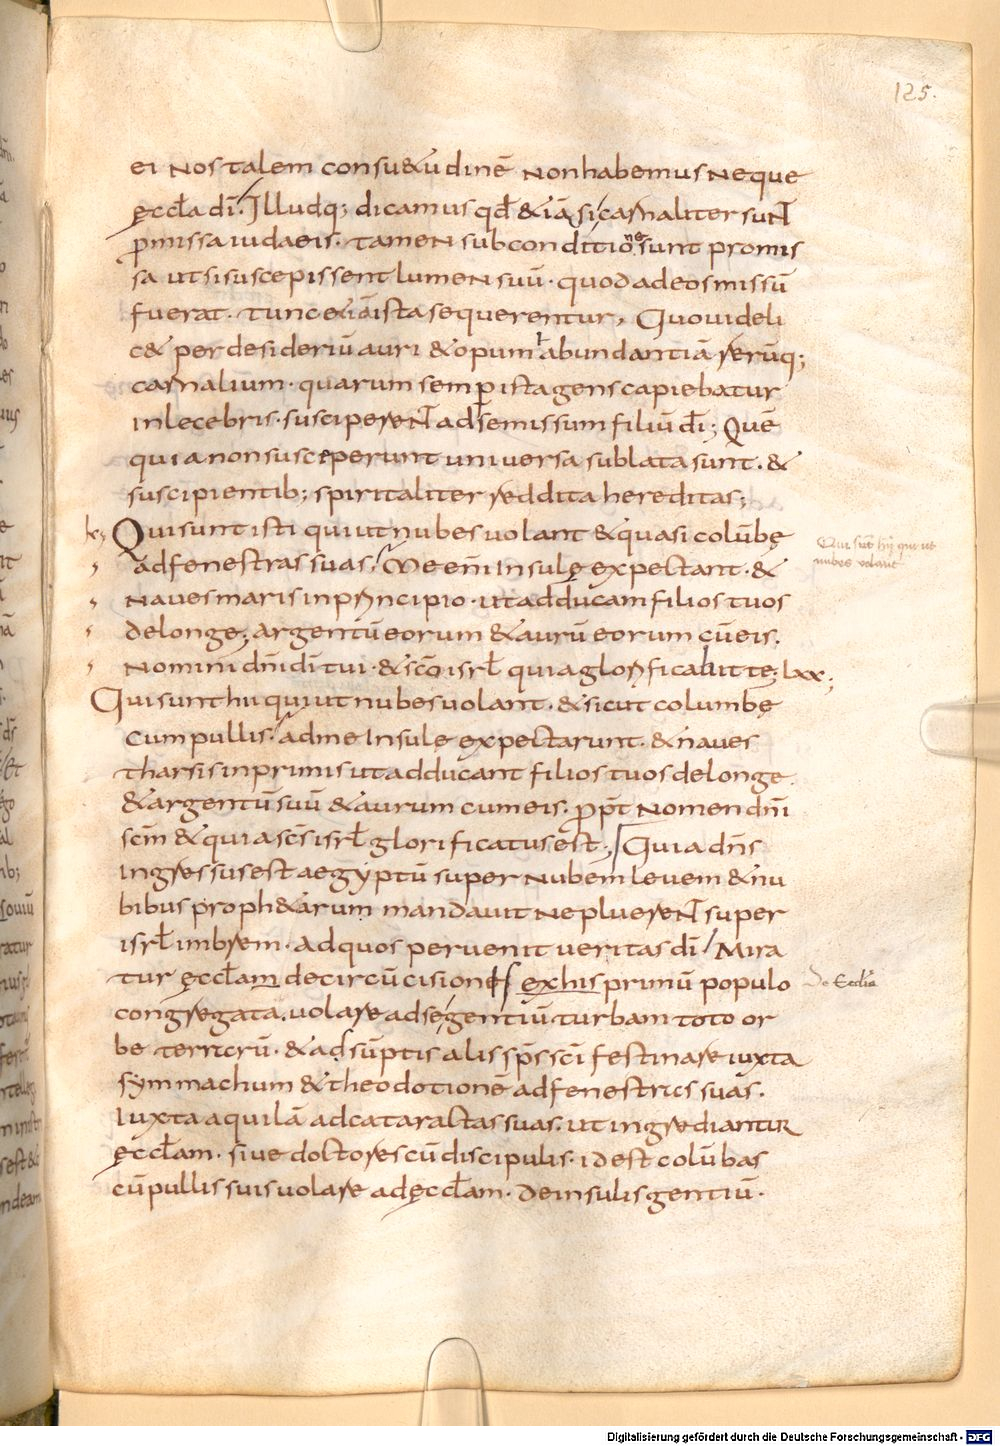 125.
ei nos talem consu&udinē non habemus neque
ęccła dī. Illudq; dicamus qđ &iā si carnaliter sunt
pmissa iudaeis. tamen sub conditione sunt promis
sa ut si suscepissent lumen suū. quod ad eos missū
fuerat. tunc &iā ista sequerentur. Quo videli
c& per desideriū auri & opum abundantiā rerūq;
carnalium. quarum semp ista gens capiebatur
inlecebris. susciperent ad se missum filiū dī; Quē
quia non susceperunt universa sublata sunt. &
suscipientib; spiritaliter reddita hereditas;
Qui sunt isti qui ut nubes volant & quasi colūbę
ad fenestras suas. Me enī insulę expectant. &
naves maris in principio. ut adducam filios tuos
de longe; argentū eorum & aurū eorum cū eis.
nomini dnī dī tui. & scō isrł quia glorificabit te; lxx;
Qui sunt hii qui ut nubes volant. & sicut columbę
cum pullis. ad me insulę expectarunt. & naves
tharsis in primis ut adducant filios tuos de longe.
& argentū suū & aurum cum eis. ppt nomen dnī
scm & quia scs isrł glorificatus est; Quia dns
ingressus est aegyptū super nubem levem & nu
bibus proph&arum mandavit ne pluerent super
isrł imbrem. ad quos pervenit veritas dī / Mira
tur ęccłam de circūcisione & ex his primū populo
congregata. volare ad se gentiū turbam toto or
be terrarū. & adsūptis alis sps sci festinare iuxta
symmachum & theodotionē ad fenestras suas.
Iuxta aquilā ad cataractas suas. ut ingrediantur
ęccłam. sive doctores cū discipulis. id est colūbas
cū pullis suis volare ad ęccłam. de insulis gentiū.
Qui sūt hij qui ut
nubes volant
De Ecclia
Digitalisierung gefördert durch die Deutsche Forschungsgemeinschaft - DFG